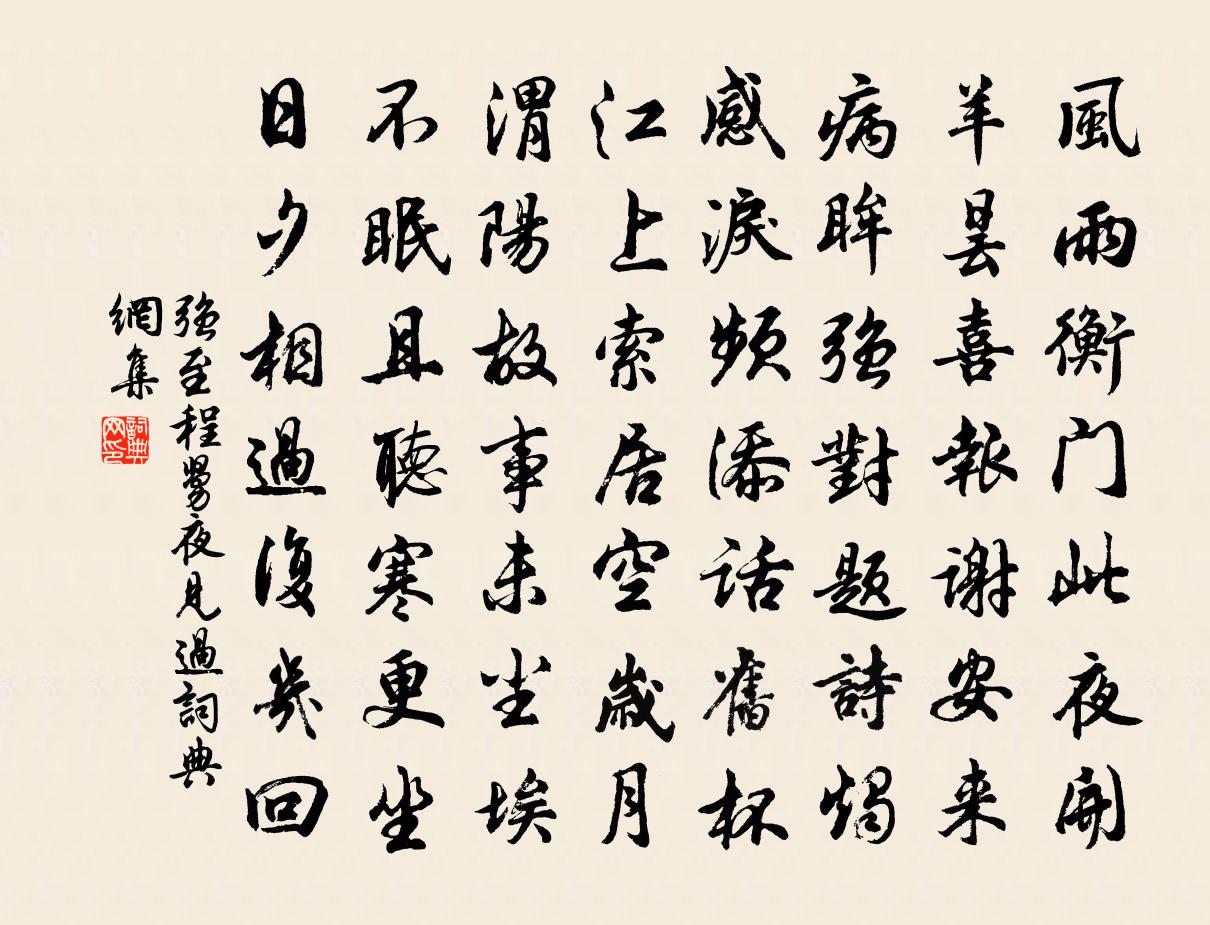 風雨衡門此夜開
羊曇喜報謝安来
病眸強對題詩燭
感淚頻添話舊杯
江上索居空歲月
渭陽故事未尘埃
不眠且聽寒更坐
日夕相過復幾回
強至程舅夜見過詞典
網集
詞典
网印